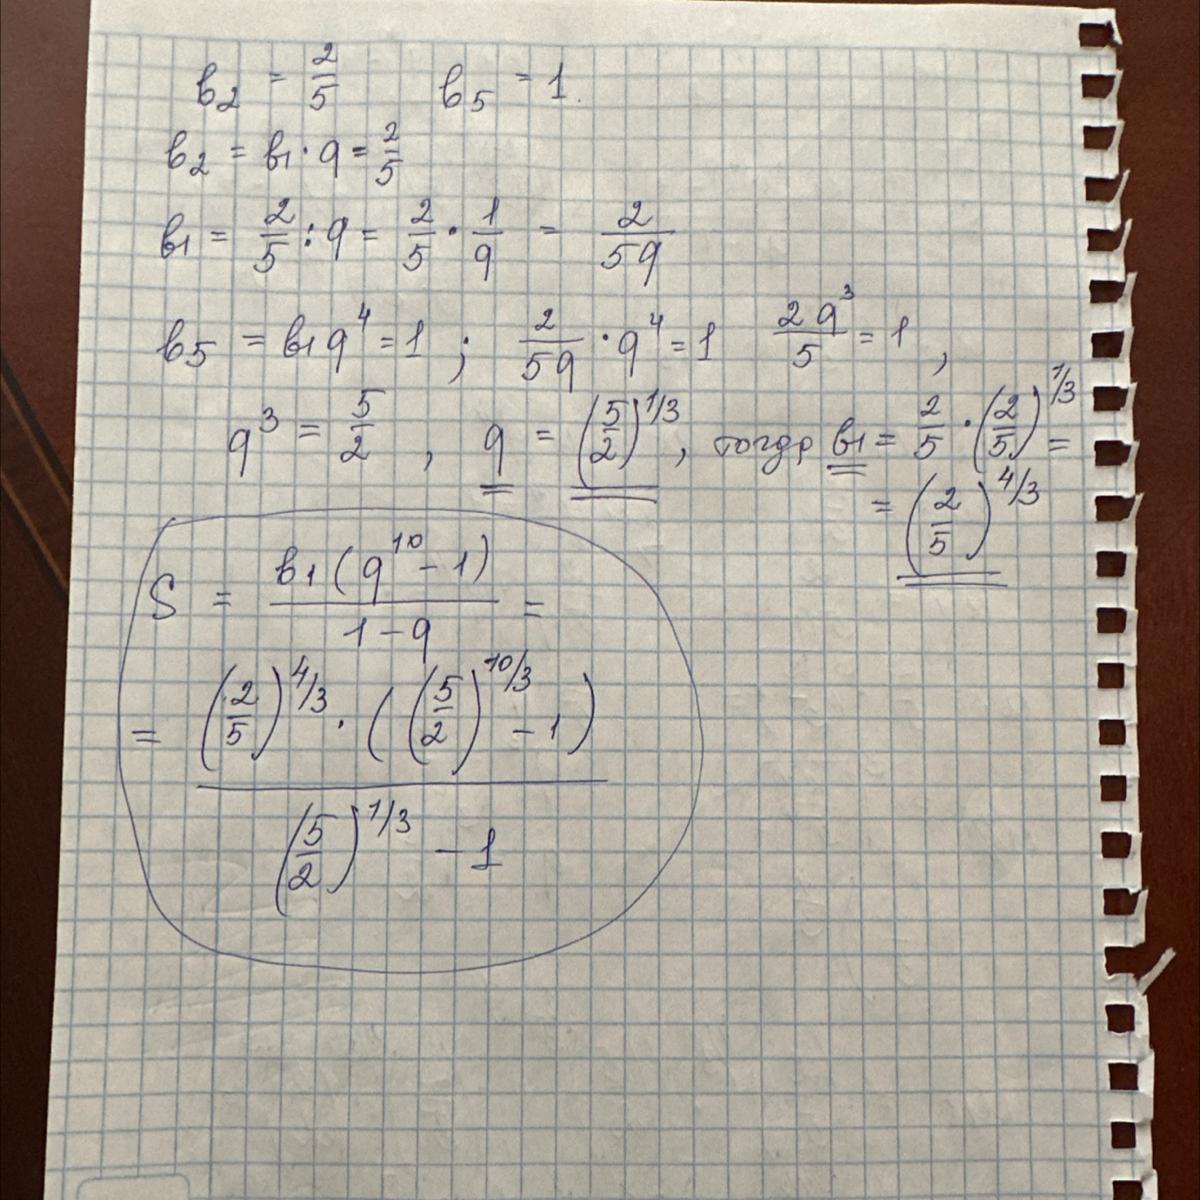 в₂ = 2/5 в₅ = 1
в₂ = в₁ · q = 2/5
в₁ = 2/5 : q = 2/5 · 1/q = 2/5q
в₅ = в₁q⁴ = 1 ; 2/5q · q⁴ = 1 2q³/5 = 1 ,
q³ = 5/2 , q = (5/2)^1/3 , тогда в₁ = 2/5 · (2/5)^1/3 =
= (2/5)^4/3
S = в₁(q¹⁰ - 1)/1 - q =
= (2/5)^4/3 · ((5/2)^10/3 - 1)/(5/2)^1/3 - 1